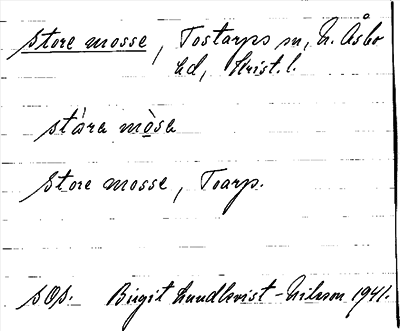 Store mosse, Tostarps m, N. Åsbo
hd, Krist. l.
stàra mòsa
Store mosse, Toarp.
sOp. Birgit Lundkvist-Nilsson 1941.